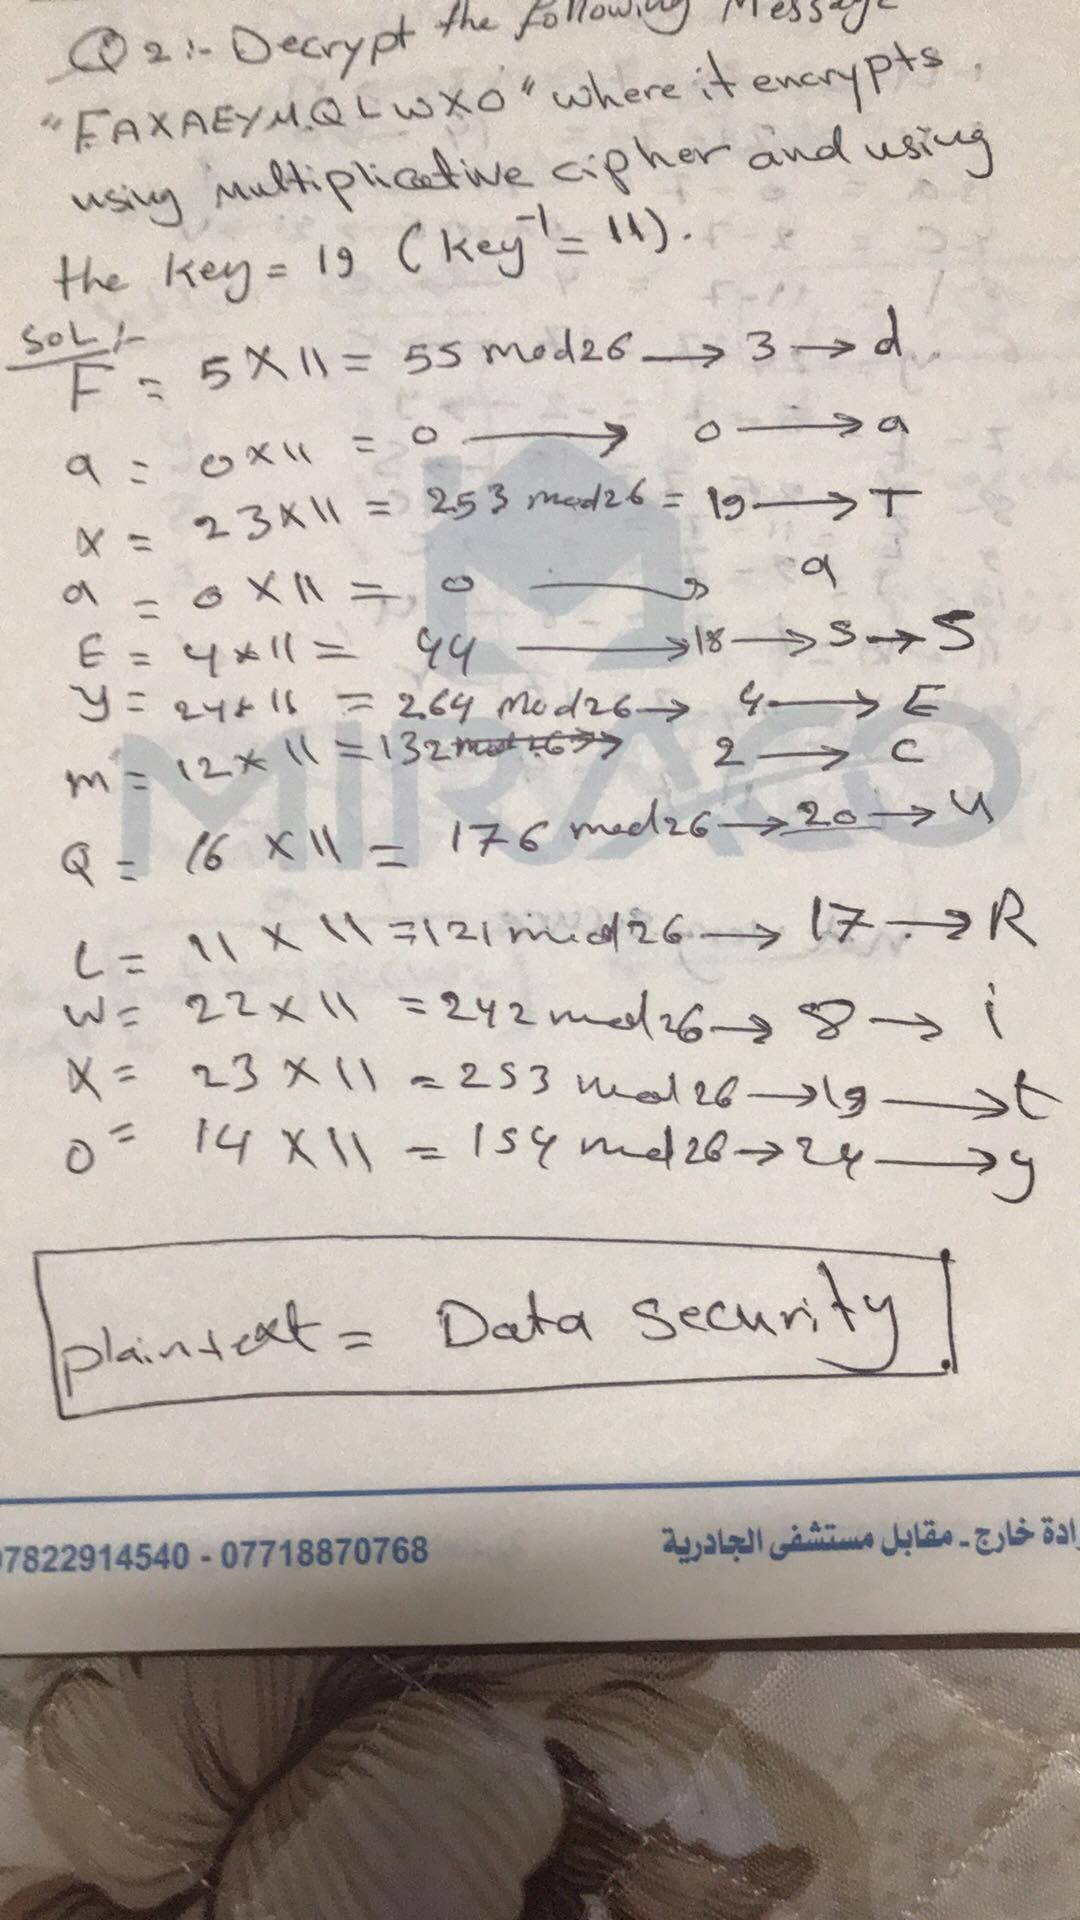 Q2:- Decrypt the following Message
"FAXAEYMQLWXO" where it encrypts
using multiplicative cipher and using
the key = 19 (key⁻¹ = 11).
SOL:-
F = 5 X 11 = 55 mod26 → 3 → d
a = 0 X 11 = 0 → 0 → a
X = 23 X 11 = 253 mod26 = 19 → T
a = 0 X 11 = 0 → a
E = 4 X 11 = 44 → 18 → S → S
y = 24 X 11 = 264 Mod26 → 4 → E
m = 12 X 11 = 132 mod 26 → 2 → C
Q = 16 X 11 = 176 mod26 → 20 → U
L = 11 X 11 = 121 mod26 → 17 → R
W = 22 X 11 = 242 mod26 → 8 → i
X = 23 X 11 = 253 mod26 → 19 → t
O = 14 X 11 = 154 mod26 → 24 → y
plaintext = Data Security
MIRACO
رادة خارج - مقابل مستشفى الجادرية
07822914540 - 07718870768